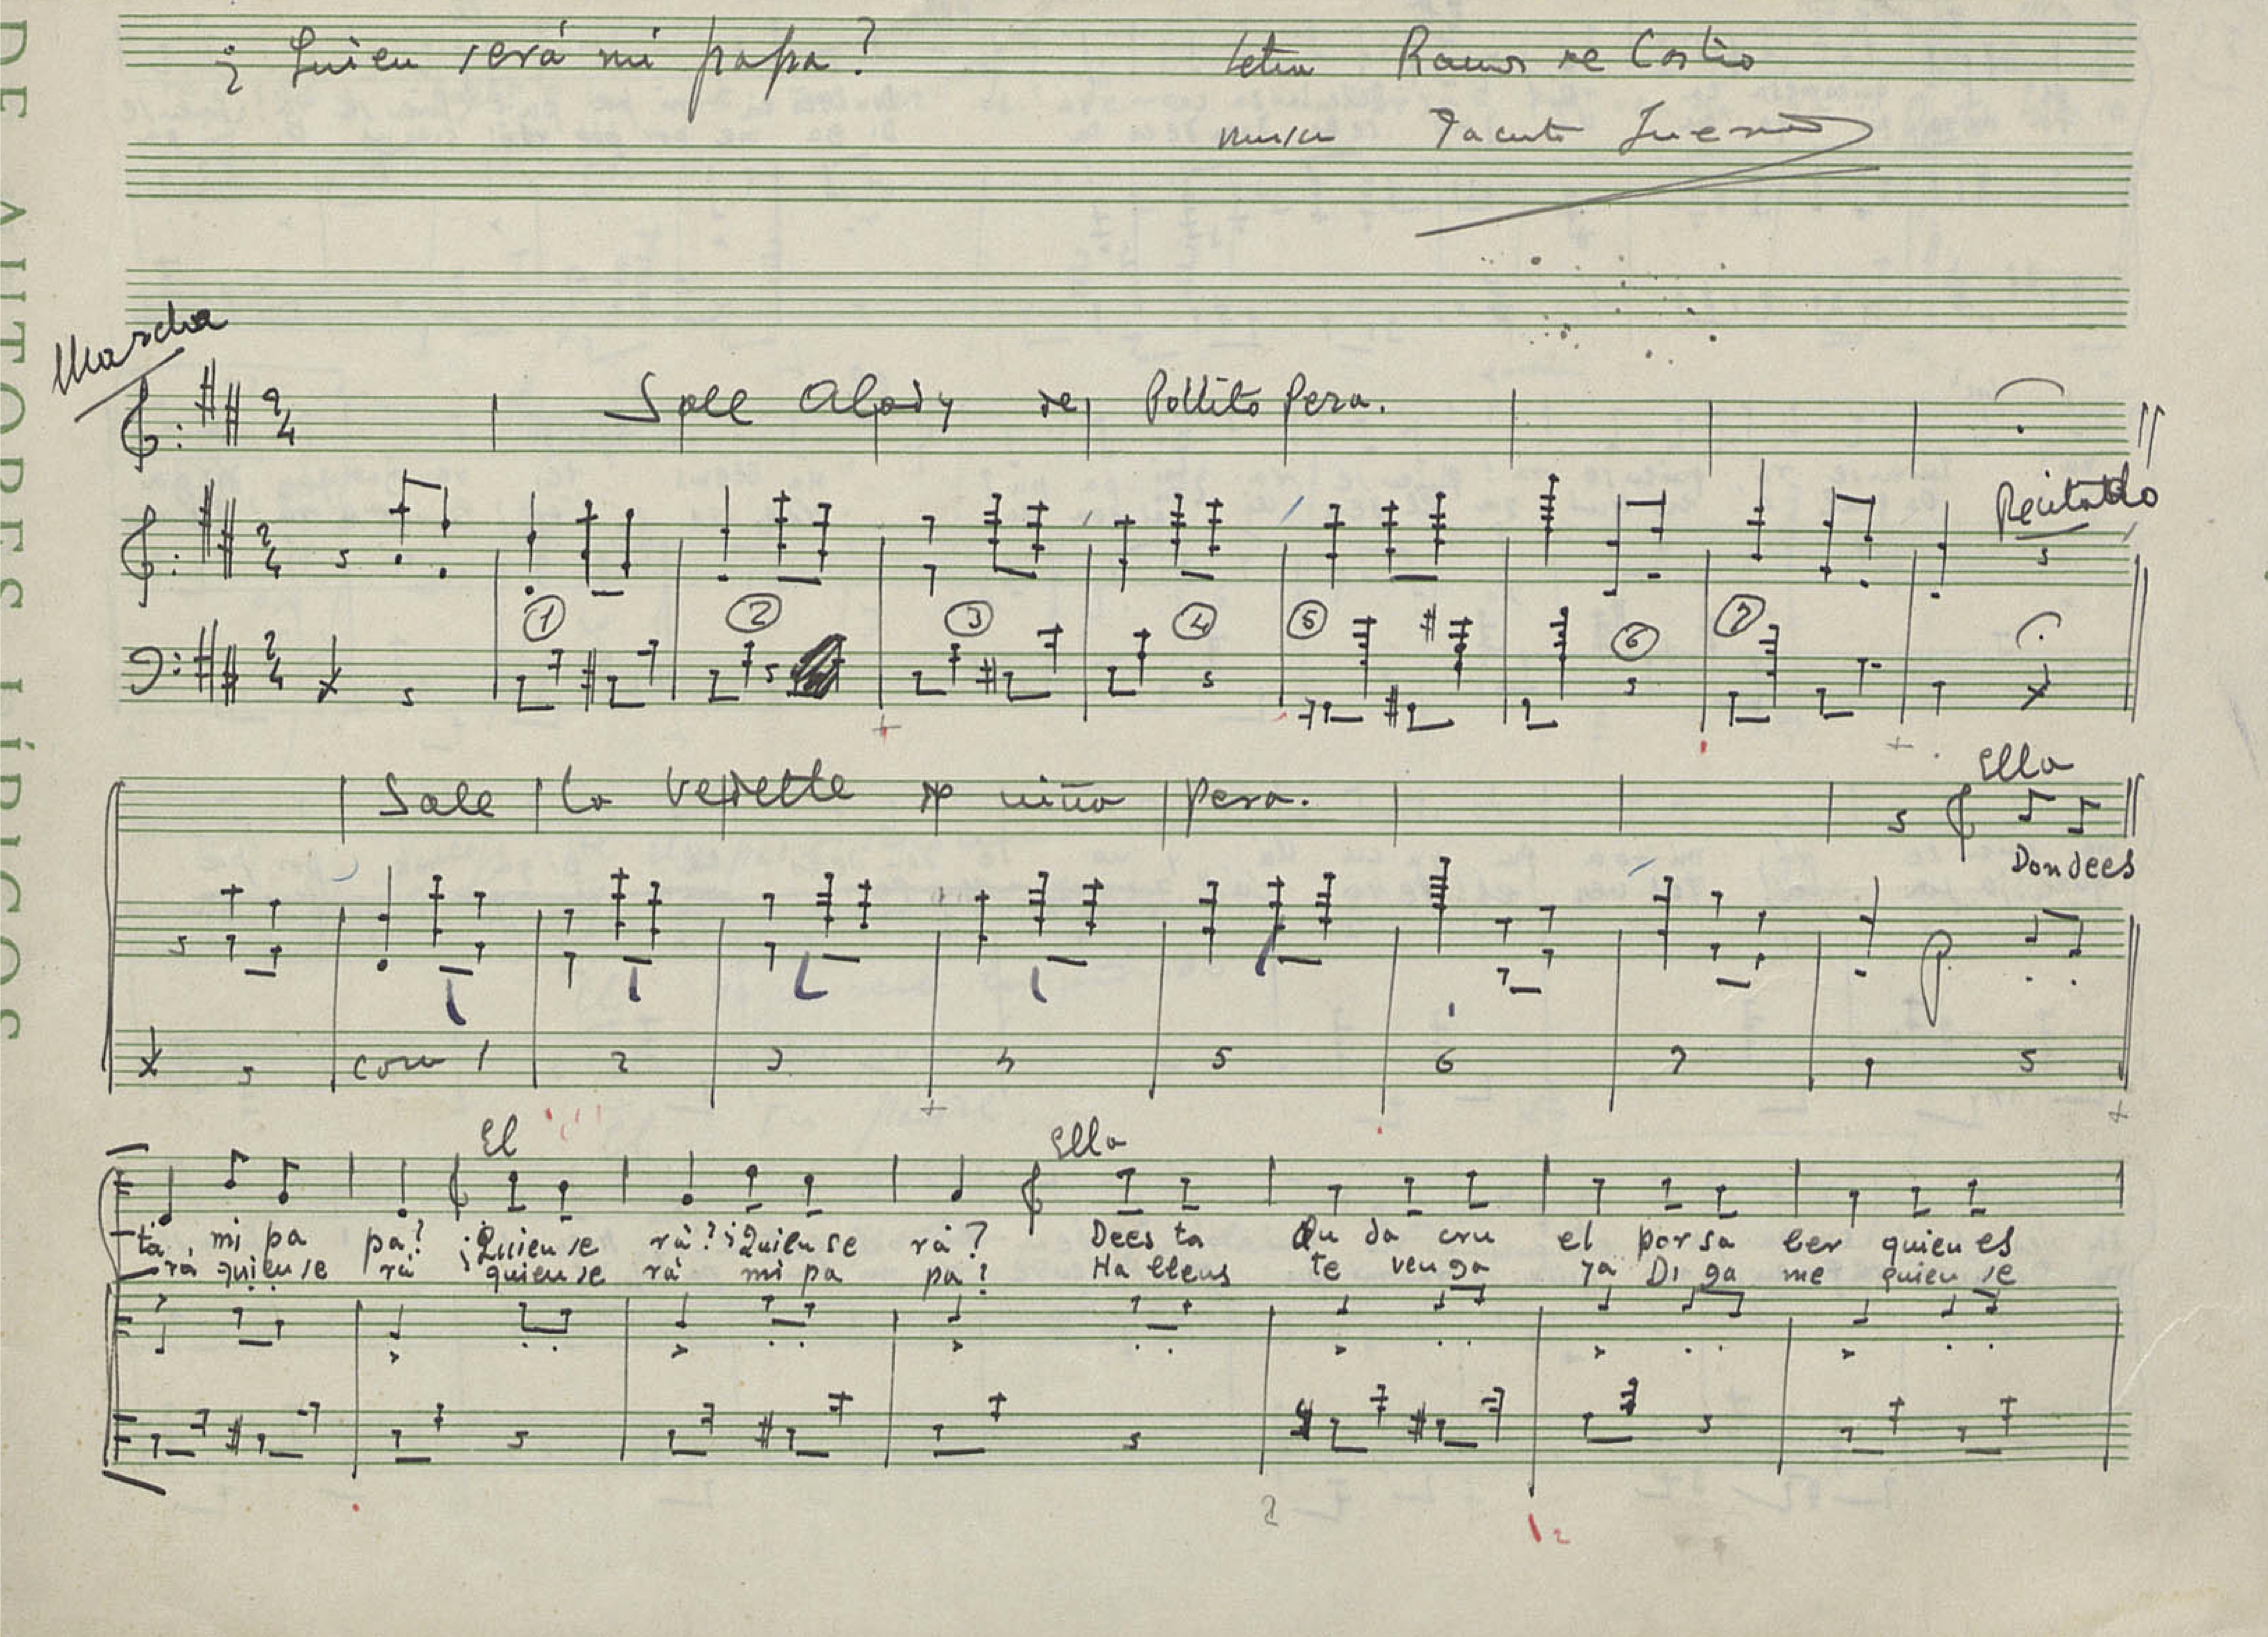 ¿Quien será mi papa? letra Ramos de Castro
musica Jacinto Guerrero
Marcha
Sale Alady de Pollito Pera.
Recitado
1 2 3 4 5 6 7
Ella
Sale la vedette de niño pera.
Don dees
com 1 2 3 4 5 6 7
El Ella
ta, mi pa pa? ¿Quien se rá? ¿Quien se rá? Dees ta du da cru el por sa ber quien es
rá quien se rá ¿quien se rá mi pa pa? Ha lleus te ven ga ya Di ga me quien se
2
2
DE AUTORES LÍRICOS